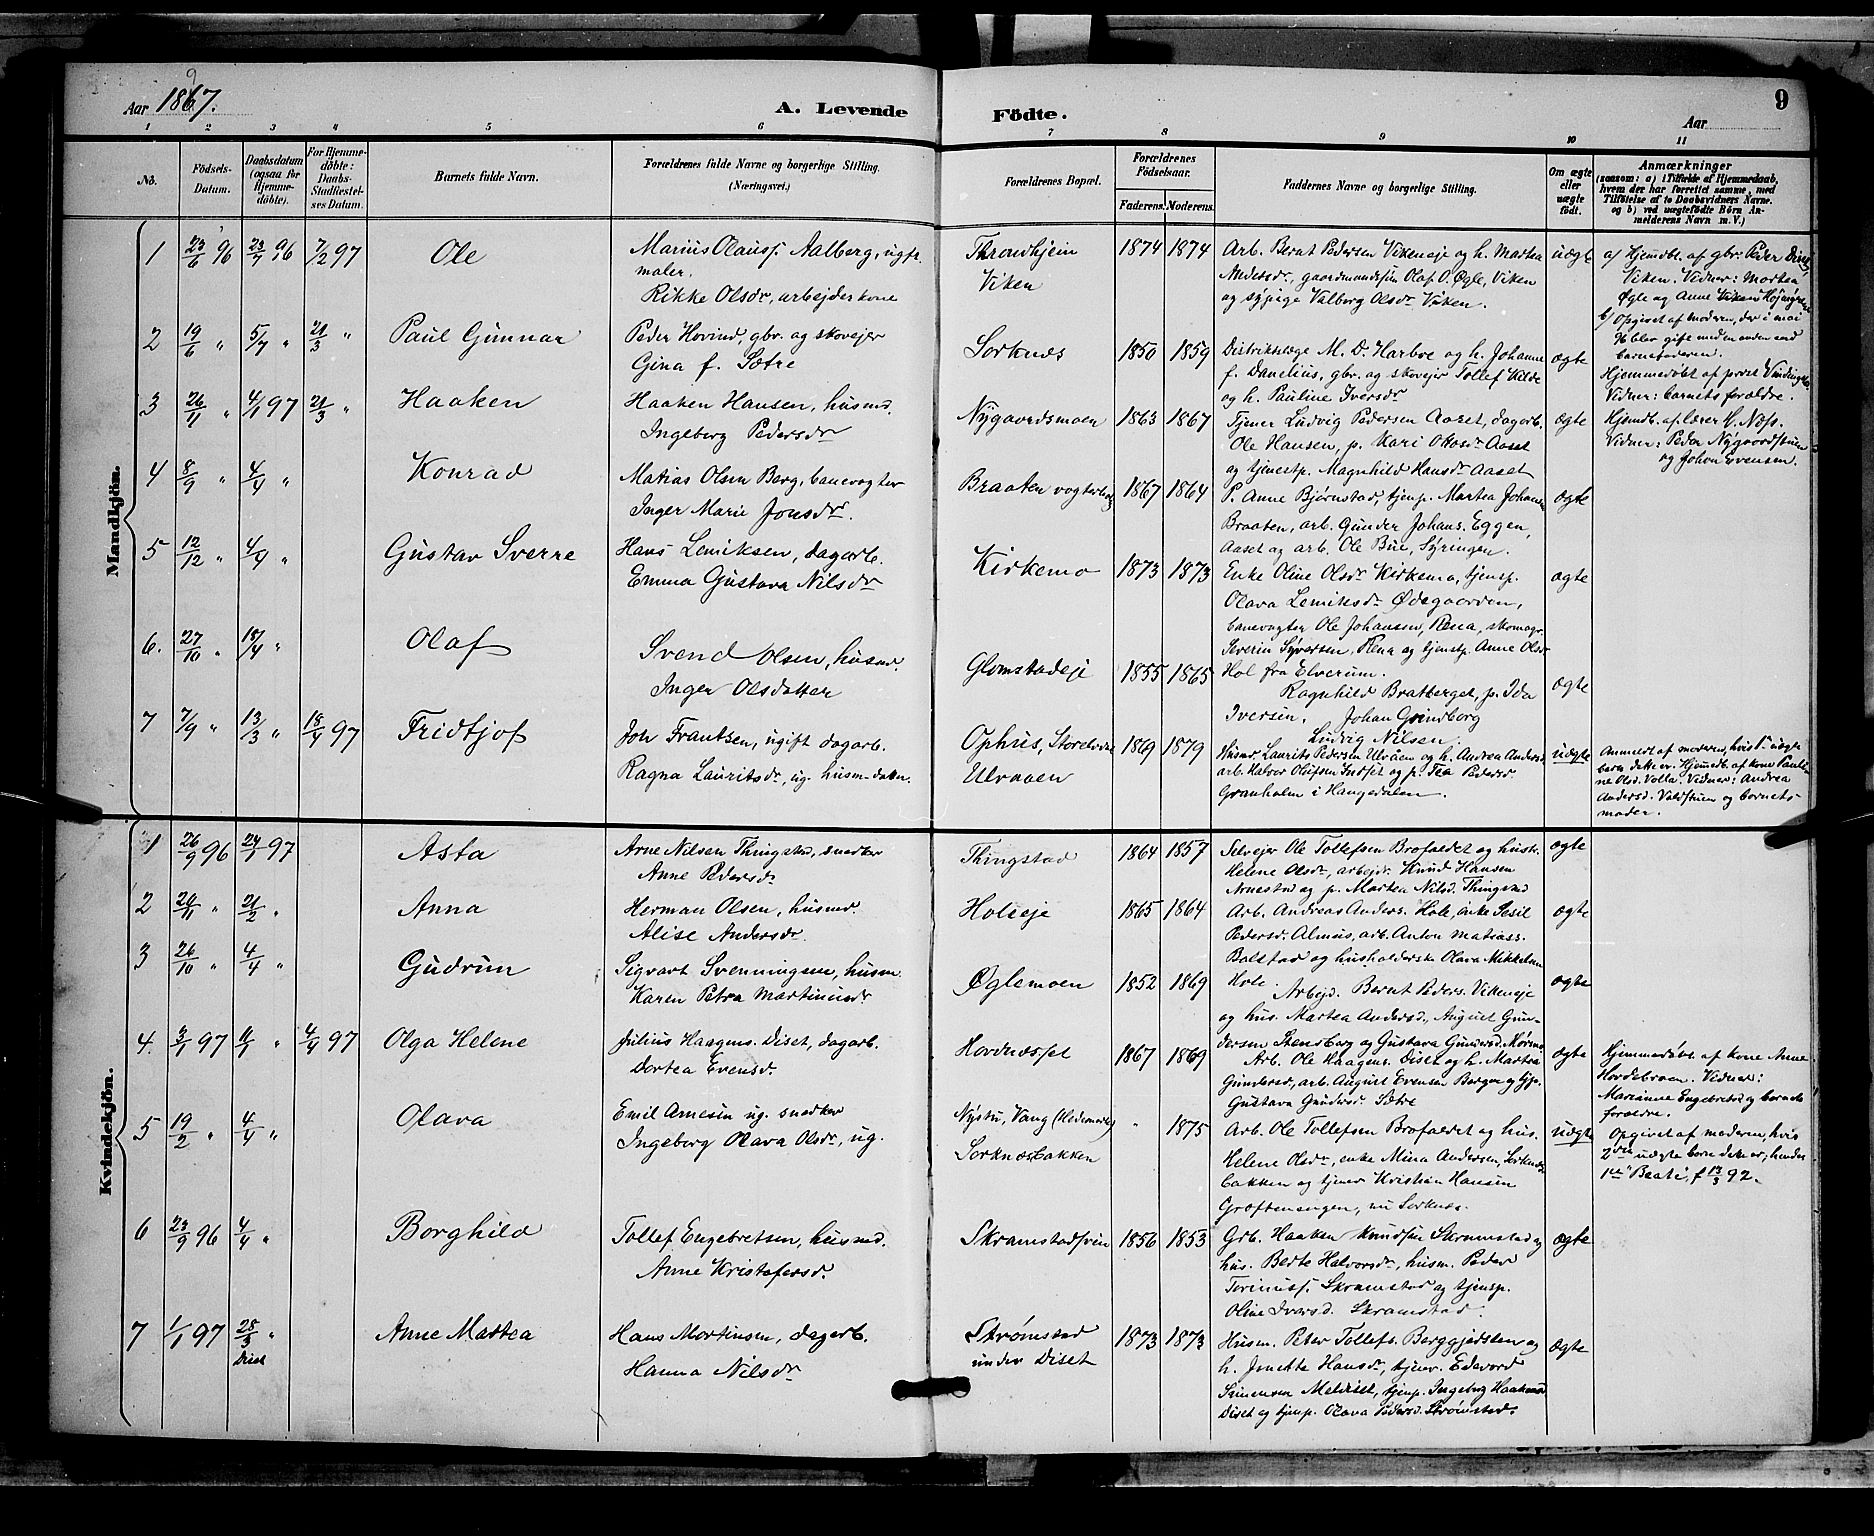 9
Aar 1867.
A. Levende Födte.
9
Aar
1 2 3 4 5 6 7 8 9 10 11
No.
Födsels-Datum.
Daabsdatum (ogsaa for Hjemmedöbte).
For Hjemmedöbte: Daabs-Stadfæstelses Datum.
Barnets fulde Navn.
Forældrenes fulde Navne og borgerlige Stilling. (Næringsvei.)
Forældrenes Bopæl.
Forældrenes Födselsaar.
Faderens. Moderens.
Faddernes Navne og borgerlige Stilling.
Om ægte eller uægte födt.
Anmærkninger
(saasom: a) i Tilfælde af Hjemmedaab, hvem der har forrettet samme, med Tilföielse af to Daabsvidners Navne. og b) ved uægtefödte Börn Anmelderens Navn m. V.)
Mandkjön.
1 23/6 96 23/7 96 7/2 97 Ole
Marius Olauss. Aalberg, ugift
maler.
Rikke Olsdr, arbejderkone
Throndhjem
Viken
1874 1874
Arb. Bernt Pedersen Vikeneje og h. Martea
Andersdr, gaardmandssön Olaf O. Øgle, Viken
og sypige Valborg Olsdr Viken.
uægte
a) Hjemdbt. af gbr. Peder
Viken. Vidner: Martea
Øgle og Anne Viken
b) Opgivet af moderen, der i mai
96 blev gift med en anden end
barnefaderen.
2 19/6 " 5/7 " 21/3 " Paul Gunnar
Peder Hovind, gbr. og skovejer
Gina f. Sætre
Sorknes
1850 1859
Distriktslæge M. D. Harboe og h. Johanne
f. Danelius, gbr. og skovejer Tollef Kilde
og h. Pauline Iversdr
ægte
Hjemmedöbt af provst
Vidner: barnets forældre.
3 26/11 " 4/1 97 21/3 " Haaken
Haaken Hansen, husmd.
Ingeborg Pedersdr
Nygaardsmoen
1863 1867
Tjener Ludvig Pedersen Aaset, dagarb.
Ole Hansen, p. Mari Olsdr Aaset
og tjenestp. Magnhild Hansdr Aaset
ægte
Hjemdb. af lærer H. Næss.
Vidner: Peder Nygaardstuen
og Johan Evensen.
4 8/9 " 4/4 " Konrad
Matias Olsen Berg, banevogter
Inger Marie Jonsdr.
Braaten vogterbol
1867 1864
P. Anne Bjørnstad, tjenp. Martea Johans
Braaten, arb. Gunder Johans. Eggen,
Aaset og arb. Ole Bue, Syringen.
ægte
5 12/12 " 4/4 " Gustav Sverre
Hans Lemiksen, dagarb.
Emma Gustava Nilsdr
Kirkemo
1873 1873
Enke Oline Olsdr Kirkemo, tjensp.
Olava Lemiksdr Ødegaarden,
banevogter Ole Johansen, Rena, skomagr.
Severin Syversen, Rena og tjenstp. Anne Olsdr
Hol fra Elverum.
ægte
6. 27/10 " 18/4 " Olaf
Svend Olsen, husmd.
Inger Olsdatter
Glomstadeje
1855 1865
Ragnhild Bratberget, p. Ida
Iversen, Johan Grindborg
Ludvig Nilsen.
ægte
7 7/9 " 13/3 " 18/4 97 Fridtjof
Joh Frantsen, ugift dagarb.
Ragna Lauritsdr, ug. husm. dattr.
Ophus, Storelvdal
Ulvaaen
1869 1879
Husmd. Laurits Pedersen Ulvaaen og h. Andrea Andersd
arb. Halvor Olufsen Indset og p. Tea Pedersd
Granholm i Haugedalen.
uægte
Anmeldt af moderen, hvis 1ste uægte
barn dette er. Hjemdb. af kone Pauli-
ne Olsd. Volla. Vidner: Andrea
Andersd. Voldstuen og barnets
moder.
Kvindekjön.
1 26/9 96 24/1 97 Asta
Arne Nilsen Thingstad, snedker
Anne Pedersdr
Thingstad
1864 1857
Selvejer Ole Tollefsen Brofaldet og hustr.
Helene Olsdr, arbejdr. Knud Hansen
Arnestad og p. Martea Nilsd. Thingstad
ægte
2 20/11 " 21/2 " Anna
Herman Olsen, husmd.
Alise Andersdr.
Holseje
1865 1864
Arb. Andreas Anders. Hole, enke Sesil
Pedersd. Almus, arb. Anton Matiass.
Balstad og husholderske Olava Mikkelsen
Hole.
ægte
3 26/10 " 4/4 " Gudrun
Sigvart Svenningsen, husm.
Karen Petra Martinusdr
Øglemoen
1852 1869
Arbejd. Bernt Peders. Vikeneje
og hus. Martea Andersd., August Gun-
dersen Stensberg og Gustava Gundersd.
ægte
4. 3/1 97 11/1 " 4/4 97 Olga Helene
Julius Haagens. Diset, dagarb.
Dortea Evensd.
Hovdnesset
1867 1869
Arb. Ole Haagens. Diset og h. Martea
Gundersd, arb. August Evensen Berger og tjp.
Gustava Gundersd. Sætre
ægte
Hjemmedöbt af kone Anne
Hovdebraaen. Vidner:
Marianne Engebretsd og barnets
forældre.
5 19/2 " 4/4 " Olava
Emil Arnesen ug. snedker
Ingeborg Olava Olsdr, ug.
Nystu, Vang (Hedemarken)
Sorknesbakken
" 1875
Arb. Ole Tollefsen Brofaldet og hus.
Helene Olsdr, enke Mina Andersen, Sorknes-
bakken og tjener Kristian Hansen
Grøftenengen, nu Sorknes.
uægte
Opgivet af moderen, hvis
2det uægte barn dette er; hendes
1ste "Beate", f. 13/3 92.
6 23/9 96 4/4 " Borghild
Tollef Engebretsen, husmd.
Anne Kristofersd.
Skramstadsveen
1856 1853
Grb. Haaken Knudsen Skramstad og
hus. Berte Halvorsdr, husm. Peder
Torinuss. Skramstad og tjensp.
Oline Iversd. Skramstad.
ægte
7 1/1 97 28/3 " Diset Anne Martea
Hans Mortinsen, dagarb.
Hanna Nilsdr
Strømstad
under Diset
1873 1873
Husm. Peter Tollefs. Berggjedsten og
h. Jenette Hansdr, tjener. Edevard
Simensen Meldiset, tjenp. Ingeborg Haakensd
Diset og tjenp. Olava Pedersd. Strømstad.
ægte